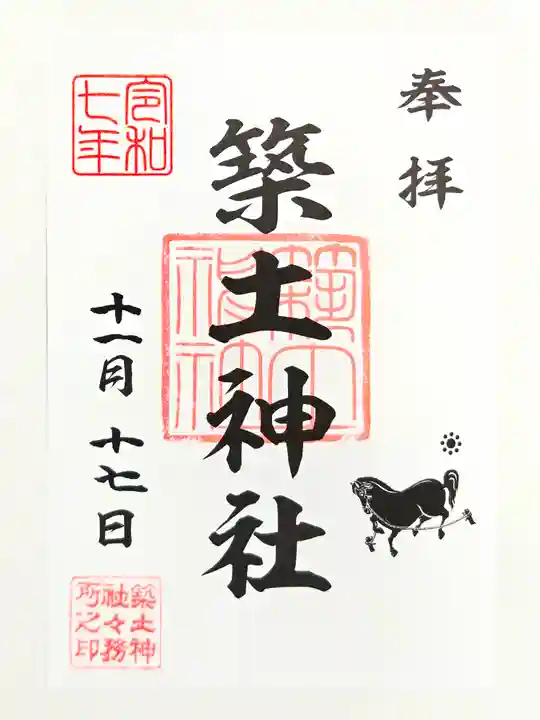 奉拝
築土神社
築土神社
令和七年
十一月十七日
築土神社々務所之印